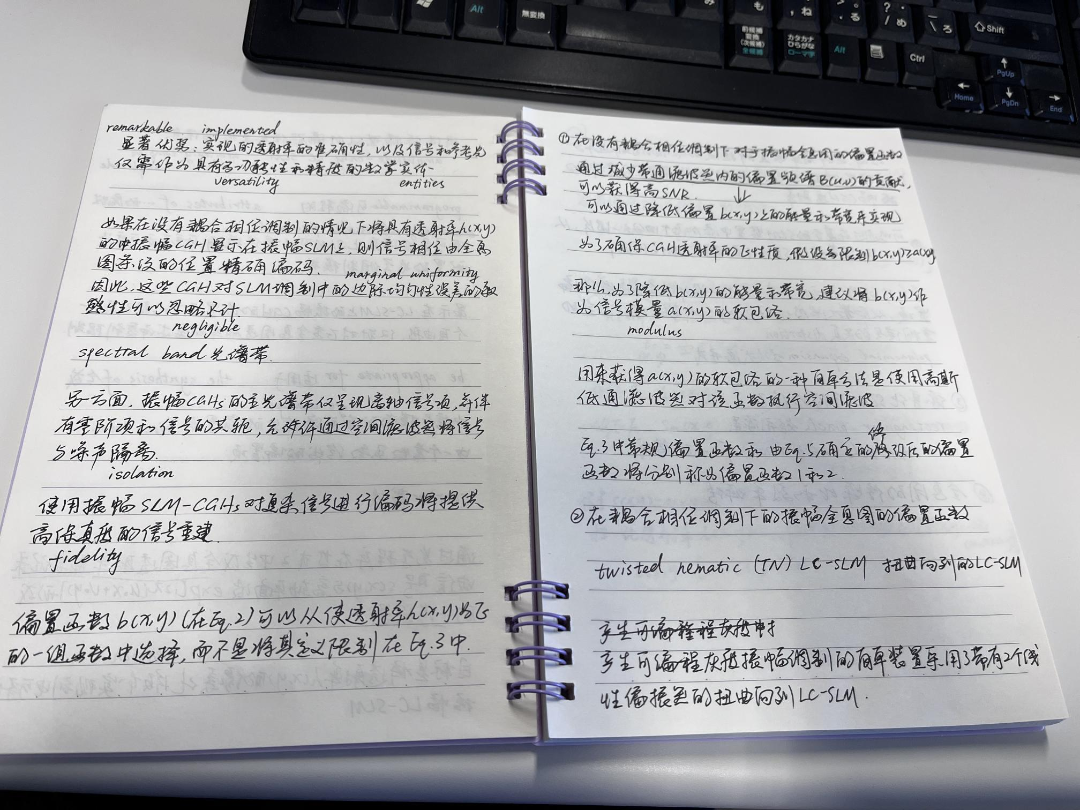 Alt
無変換
む
も
ね
る
め
ろ
Shift
前候補
変換
(次候補)
全候補
カタカナ
ひらがな
ローマ字
Alt
Ctrl
PgUp
Home
PgDn
End
remarkable implemented
显著优势:实现的透射率的准确性,以及信号和参考光
仅需作为具有多功能性和精度的数学实体
versatility entities
如果在没有耦合相位调制的情况下将具有透射率h(x,y)
的中振幅CGH显示在振幅SLM上,则信号相位由全息
图条纹的位置精确编码.
marginal uniformity
因此,这些CGH对SLM调制中的边际均匀性误差的敏
感性可以忽略不计
negligible
spectral band 光谱带
另一方面,振幅CGHs的主光谱带仅呈现离轴信号项,并伴
有零阶项和信号的共轭,允许通过空间滤波器将信号
与噪声隔离.
isolation
使用振幅SLM-CGHs对复杂信号进行编码将提供
高保真度的信号重建
fidelity
偏置函数b(x,y)(在Eq.2)可以从使透射率h(x,y)为正
的一组函数中选择,而不是将其定义限制在Eq.3中.
①在没有耦合相位调制下对于振幅全息图的偏置函数
通过减少带通滤波器内的偏置频谱B(u,v)的贡献,
可以获得高SNR. ↓
可以通过降低偏置b(x,y)上的能量和带宽来实现
为了确保CGH透射率的正性质,假设条限制b(x,y)≥a(x,y)
那么,为了降低b(x,y)的能量和带宽,建议将b(x,y)作
为信号模量a(x,y)的软包络.
modulus
用来获得a(x,y)的软包络的一种简单方法是使用高斯
低通滤波器对该函数执行空间滤波
Eq.3中常规偏置函数和由Eq.5确定的修改后的偏置
函数将分别称为偏置函数1和2.
②在耦合相位调制下的振幅全息图的偏置函数
twisted nematic (TN) LC-SLM 扭曲向列的LC-SLM
产生可编程灰度
产生可编程灰度振幅调制的简单装置采用了带有2个线
性偏振器的扭曲向列LC-SLM.